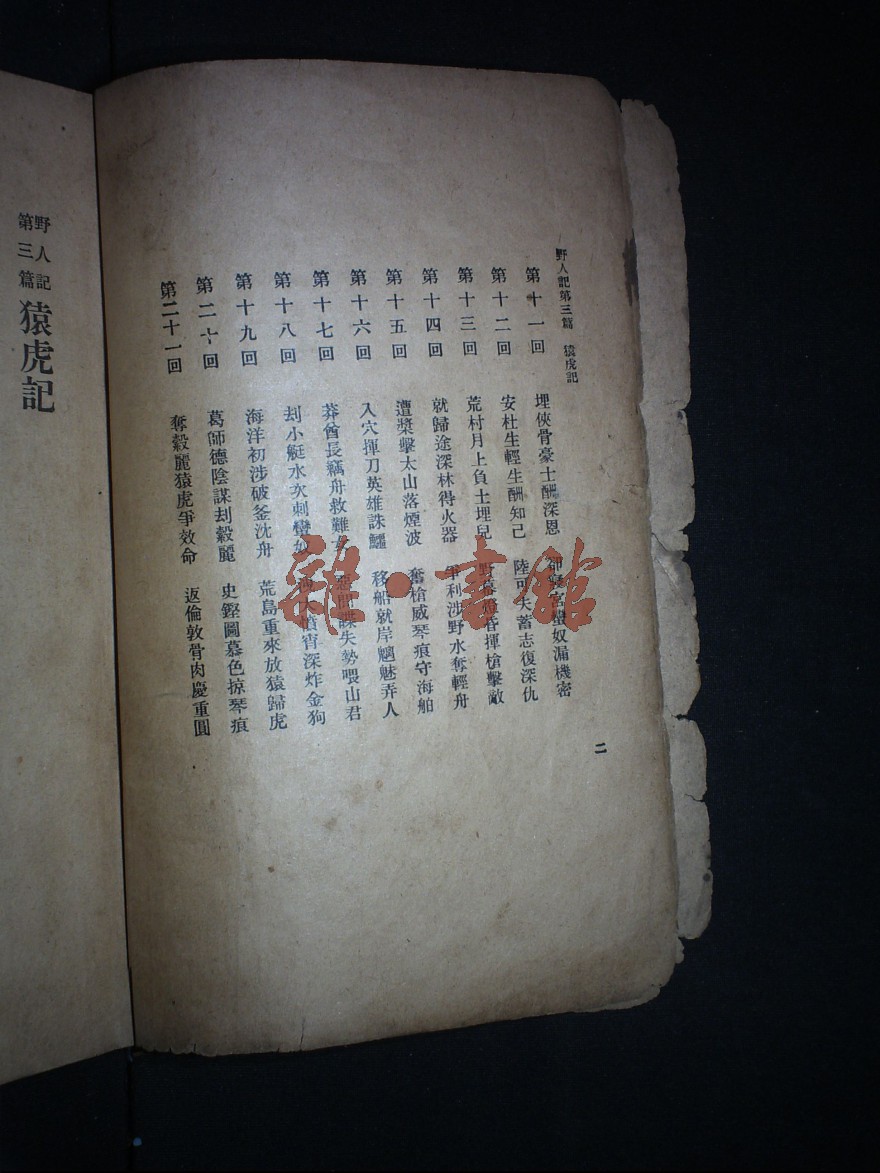 野人記第三篇 猿虎記
第十一回 埋俠骨豪士酬深恩 宮蠻奴漏機密
第十二回 安杜生輕生酬知己 陸可夫蓄志復深仇
第十三回 荒村月上負土埋兒 野 揮槍擊敵
第十四回 就歸途深林得火器 爭利涉野水奪輕舟
第十五回 遭槳擊太山落煙波 奮槍威琴痕守海舶
第十六回 入穴揮刀英雄誅鱷 移船就岸魑魅弄人
第十七回 莽酋長竊舟救難 諜失勢喂山君
第十八回 刦小艇水次刺蠻 宵深炸金狗
第十九回 海洋初涉破釜沈舟 荒島重來放猿歸虎
第二十回 葛師德陰謀刦穀麗 史鏗圖慕色掠琴痕
第二十一回 奪穀麗猿虎爭效命 返倫敦骨肉慶重圓
二
野人記
第三篇
猿虎記
雜·書館